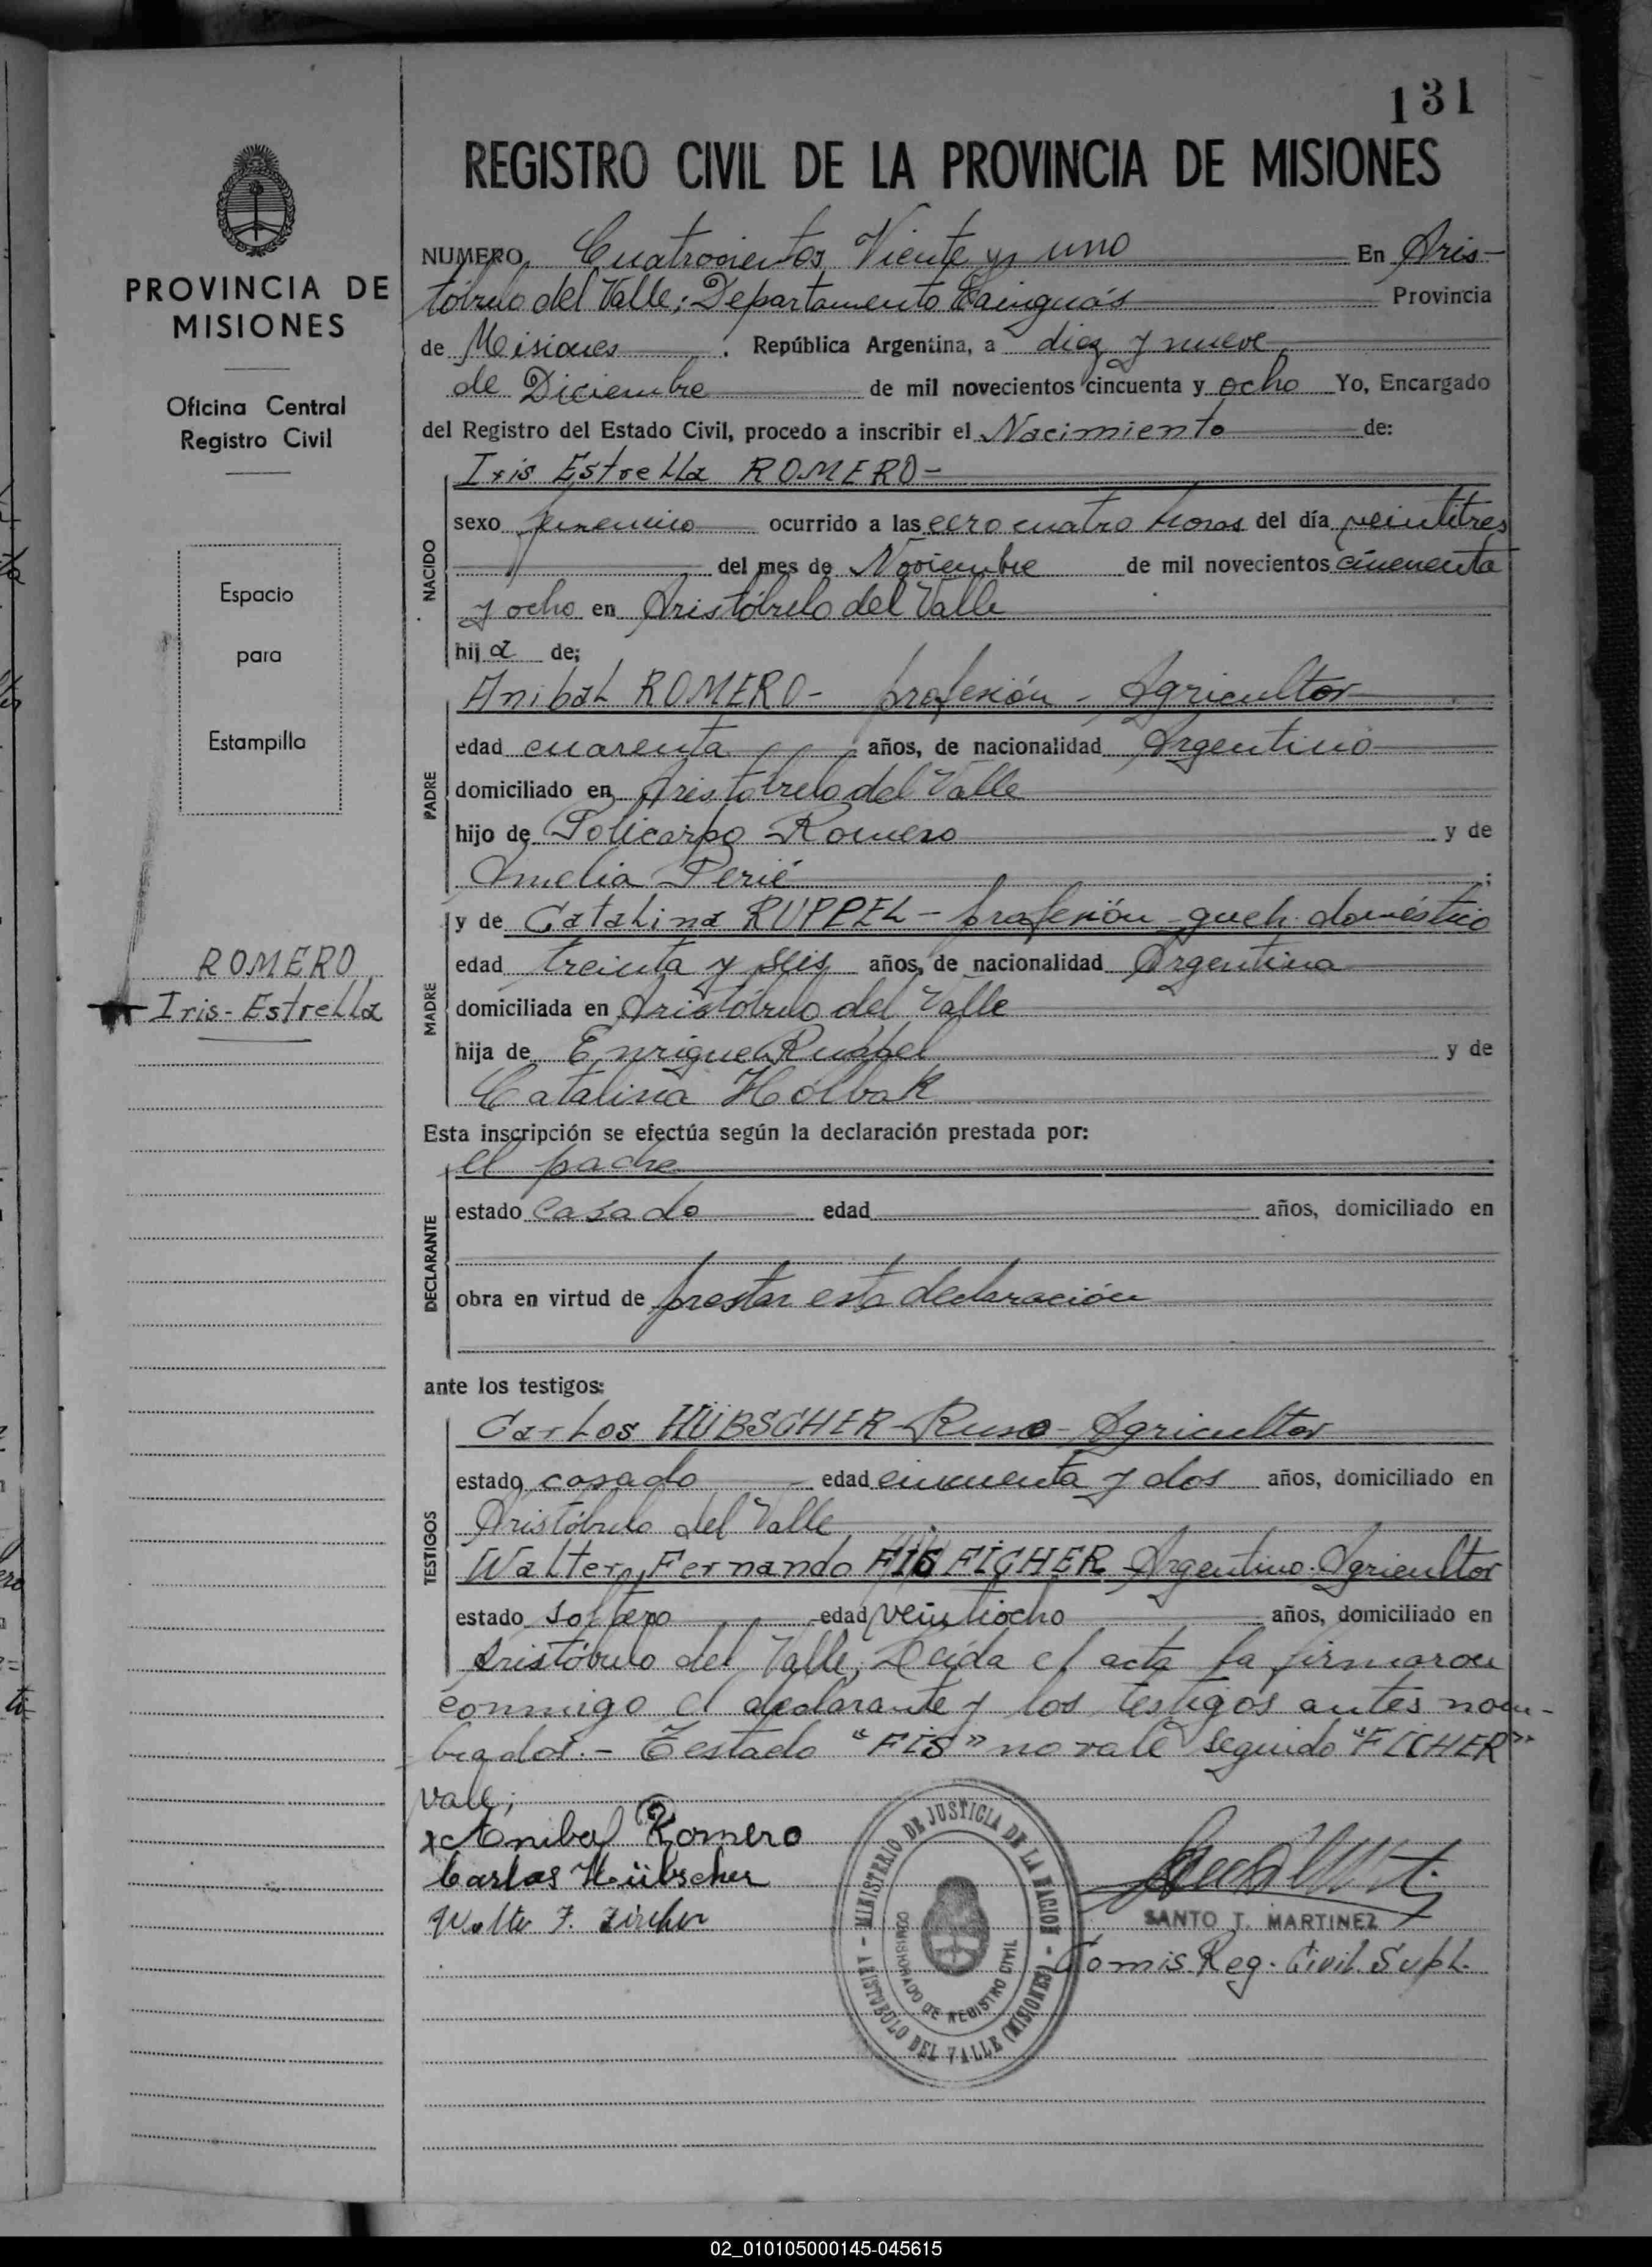 131
REGISTRO CIVIL DE LA PROVINCIA DE MISIONES
PROVINCIA DE
MISIONES
Oficina Central
Registro Civil
Espacio
para
Estampilla
ROMERO
Iris-Estrella
NUMERO Cuatrocientos Viente y uno En Aris-
tóbulo del Valle; Departamento Cainguás Provincia
de Misiones. República Argentina, a diez y nueve
de Diciembre de mil novecientos cincuenta y ocho Yo, Encargado
del Registro del Estado Civil, procedo a inscribir el Nacimiento de:
Iris Estrella ROMERO-
NACIDO
sexo femenino ocurrido a las cero cuatro horas del día veintitres
del mes de Noviembre de mil novecientos cincuenta
y ocho en Aristóbulo del Valle
hija de;
Anibal ROMERO- profesión - Agricultor
PADRE
edad cuarenta años, de nacionalidad Argentino
domiciliado en Aristóbulo del Valle
hijo de Policarpo Romero y de
Amelia Perié;
y de Catalina RUPPEL - profesión - queh. doméstico
MADRE
edad treinta y seis años, de nacionalidad Argentina
domiciliada en Aristóbulo del Valle
hija de Enrique Ruppel y de
Catalina Hólbak
Esta inscripción se efectúa según la declaración prestada por:
el padre
DECLARANTE
estado casado edad años, domiciliado en
obra en virtud de prestar esta declaración
ante los testigos:
Carlos HÜBSCHER - Ruso - Agricultor
TESTIGOS
estado casado edad cincuenta y dos años, domiciliado en
Aristóbulo del Valle
Walter Fernando FIS FICHER Argentino. Agricultor
estado soltero edad veintiocho años, domiciliado en
Aristóbulo del Valle; Leída el acta la firmaron
conmigo el declarante y los testigos antes nom-
brados.- Testado "FIS" no vale seguido "FICHER"
vale;
x Anibal Romero
Carlos Hübscher
Walter F.
SANTO T. MARTINEZ
Comis Reg. Civil. Supl.
MINISTERIO DE JUSTICIA DE LA NACION - ARISTOBULO DEL VALLE (MISIONES) -
COMISIONADO DE REGISTRO CIVIL
02_010105000145-045615